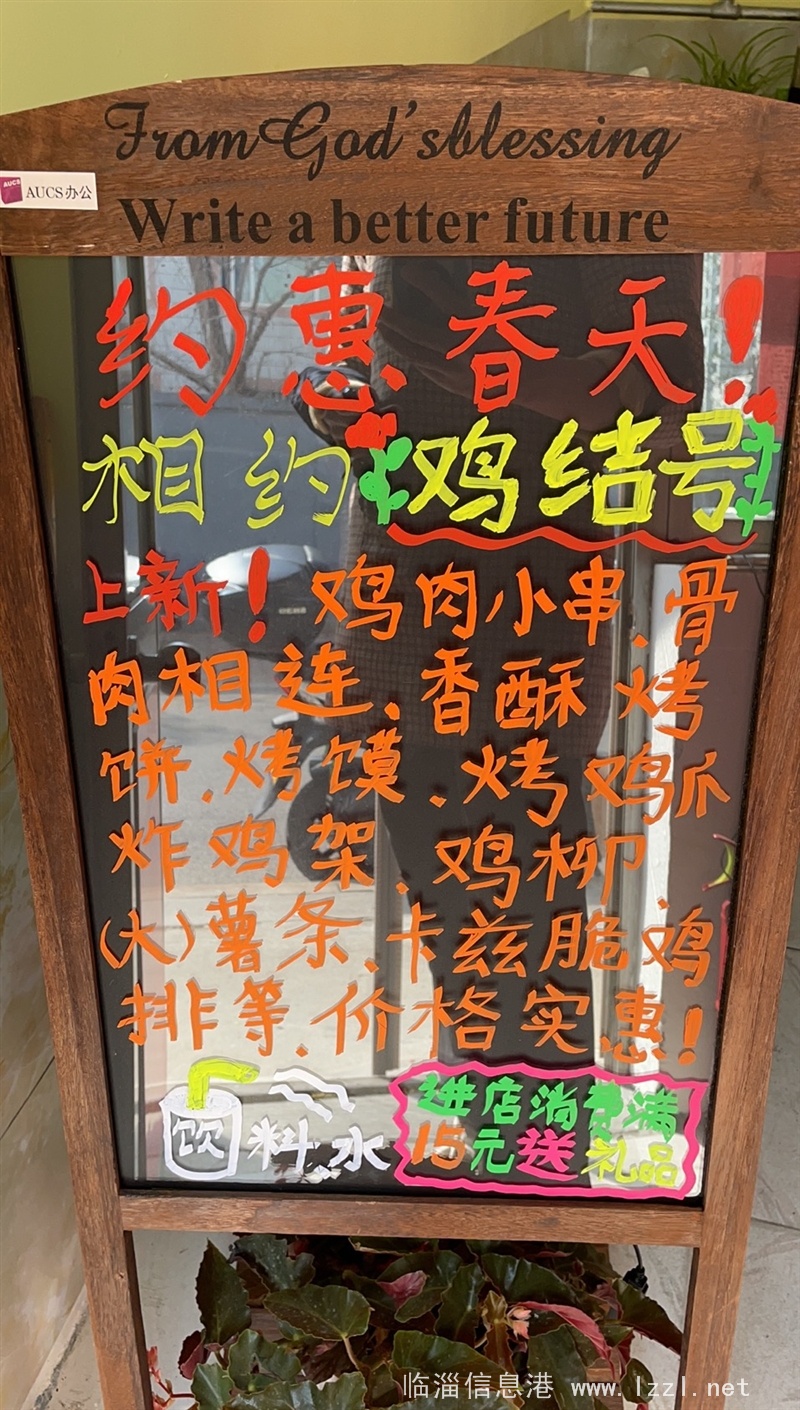 From God'sblessing
AUCS
AUCS办公
Write a better future
约惠春天!
相约鸡结号
上新!鸡肉小串、骨
肉相连、香酥烤
饼、烤馍、烤鸡爪
炸鸡架、鸡柳、
(大)薯条、卡兹脆鸡
排等、价格实惠!
饮料水
进店消费满
15元送礼品
临淄信息港 www.lzzl.net